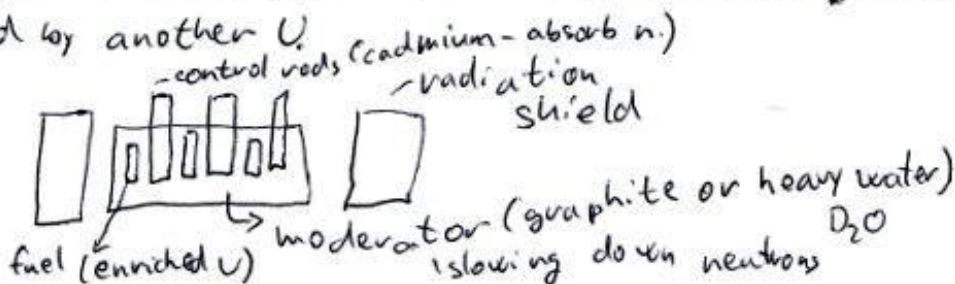 by another U.
control rods (cadmium - absorb n.)
radiation
shield
moderator (graphite or heavy water)
D₂O
fuel (enriched U)
slowing down neutrons